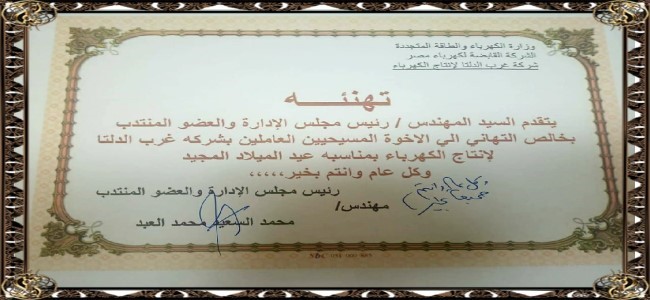 وزارة الكهرباء والطاقة المتجددة
الشركة القابضة لكهرباء مصر
شركة غرب الدلتا لإنتاج الكهرباء
تهنئه
يتقدم السيد المهندس / رئيس مجلس الإدارة والعضو المنتدب
بخالص التهاني الي الاخوة المسيحيين العاملين بشركه غرب الدلتا
لإنتاج الكهرباء بمناسبه عيد الميلاد المجيد
وكل عام وانتم بخير،،،،،
وكل عام وانتم
رئيس مجلس الإدارة والعضو المنتدب
مهندس/
محمد السعيد محمد العبد